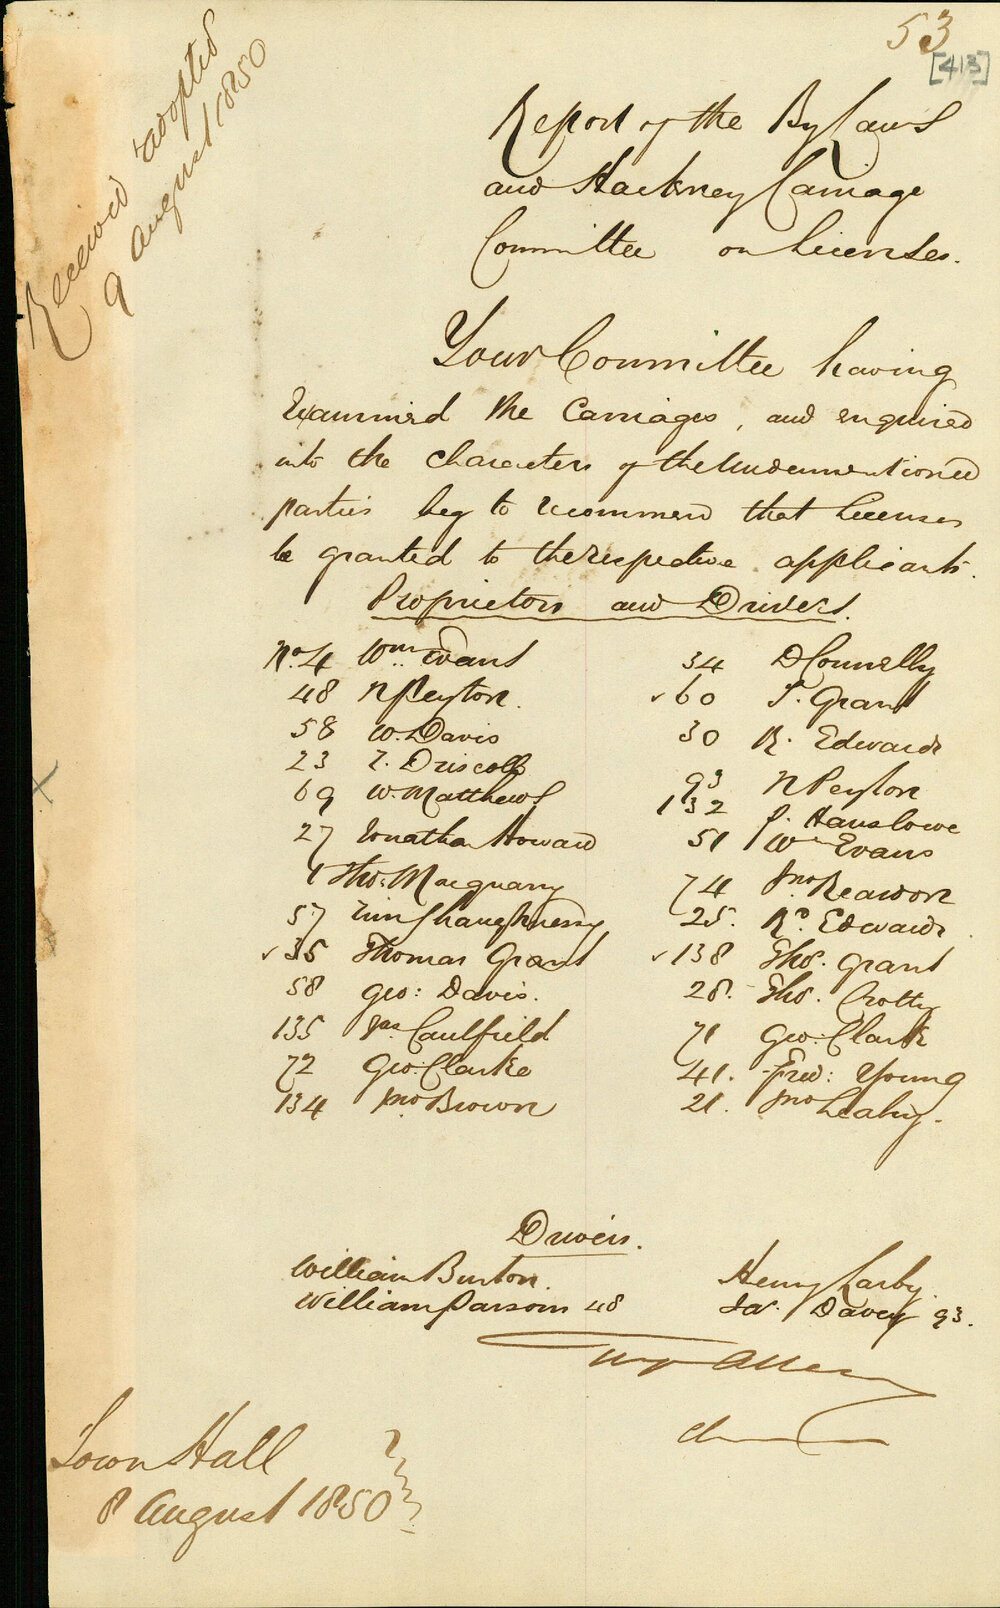 53
[413]
Received & adopted
9 August 1850
Report of the By Laws
and Hackney Carriage
Committee on Licenses.
Your Committee having
Examined the Carriages, and enquired
into the characters of the Undermentioned
parties beg to recommend that Licenses
be granted to the respective applicants.
Proprietors and Drivers.
No. 4 Wm. Evans
48 N Peyton.
58 W. Davis
23 T. Driscoll
69 W. Matthews
27 Jonathan Howard
1 Thos. Macquany
57 Tim Shaughnessy
35 Thomas Grant
58 Geo: Davis.
135 Jas Caulfield
72 Geo: Clarke
134 Jno Brown
34 D Connelly
60 T. Grant
30 R. Edwards
93 N Peyton
132 J. Hanslowe
51 Wm Evans
74 Jno Reardon
25. Rd. Edwards
138 Thos. Grant
28. Thos. Crotty
71 Geo: Clark
41. Fred: Young
21. Jno Leahy.
Drivers.
William Burton.
William Parsons 48
Henry Larby.
Davey 93.
Wm Allen
Town Hall
8 August 1850